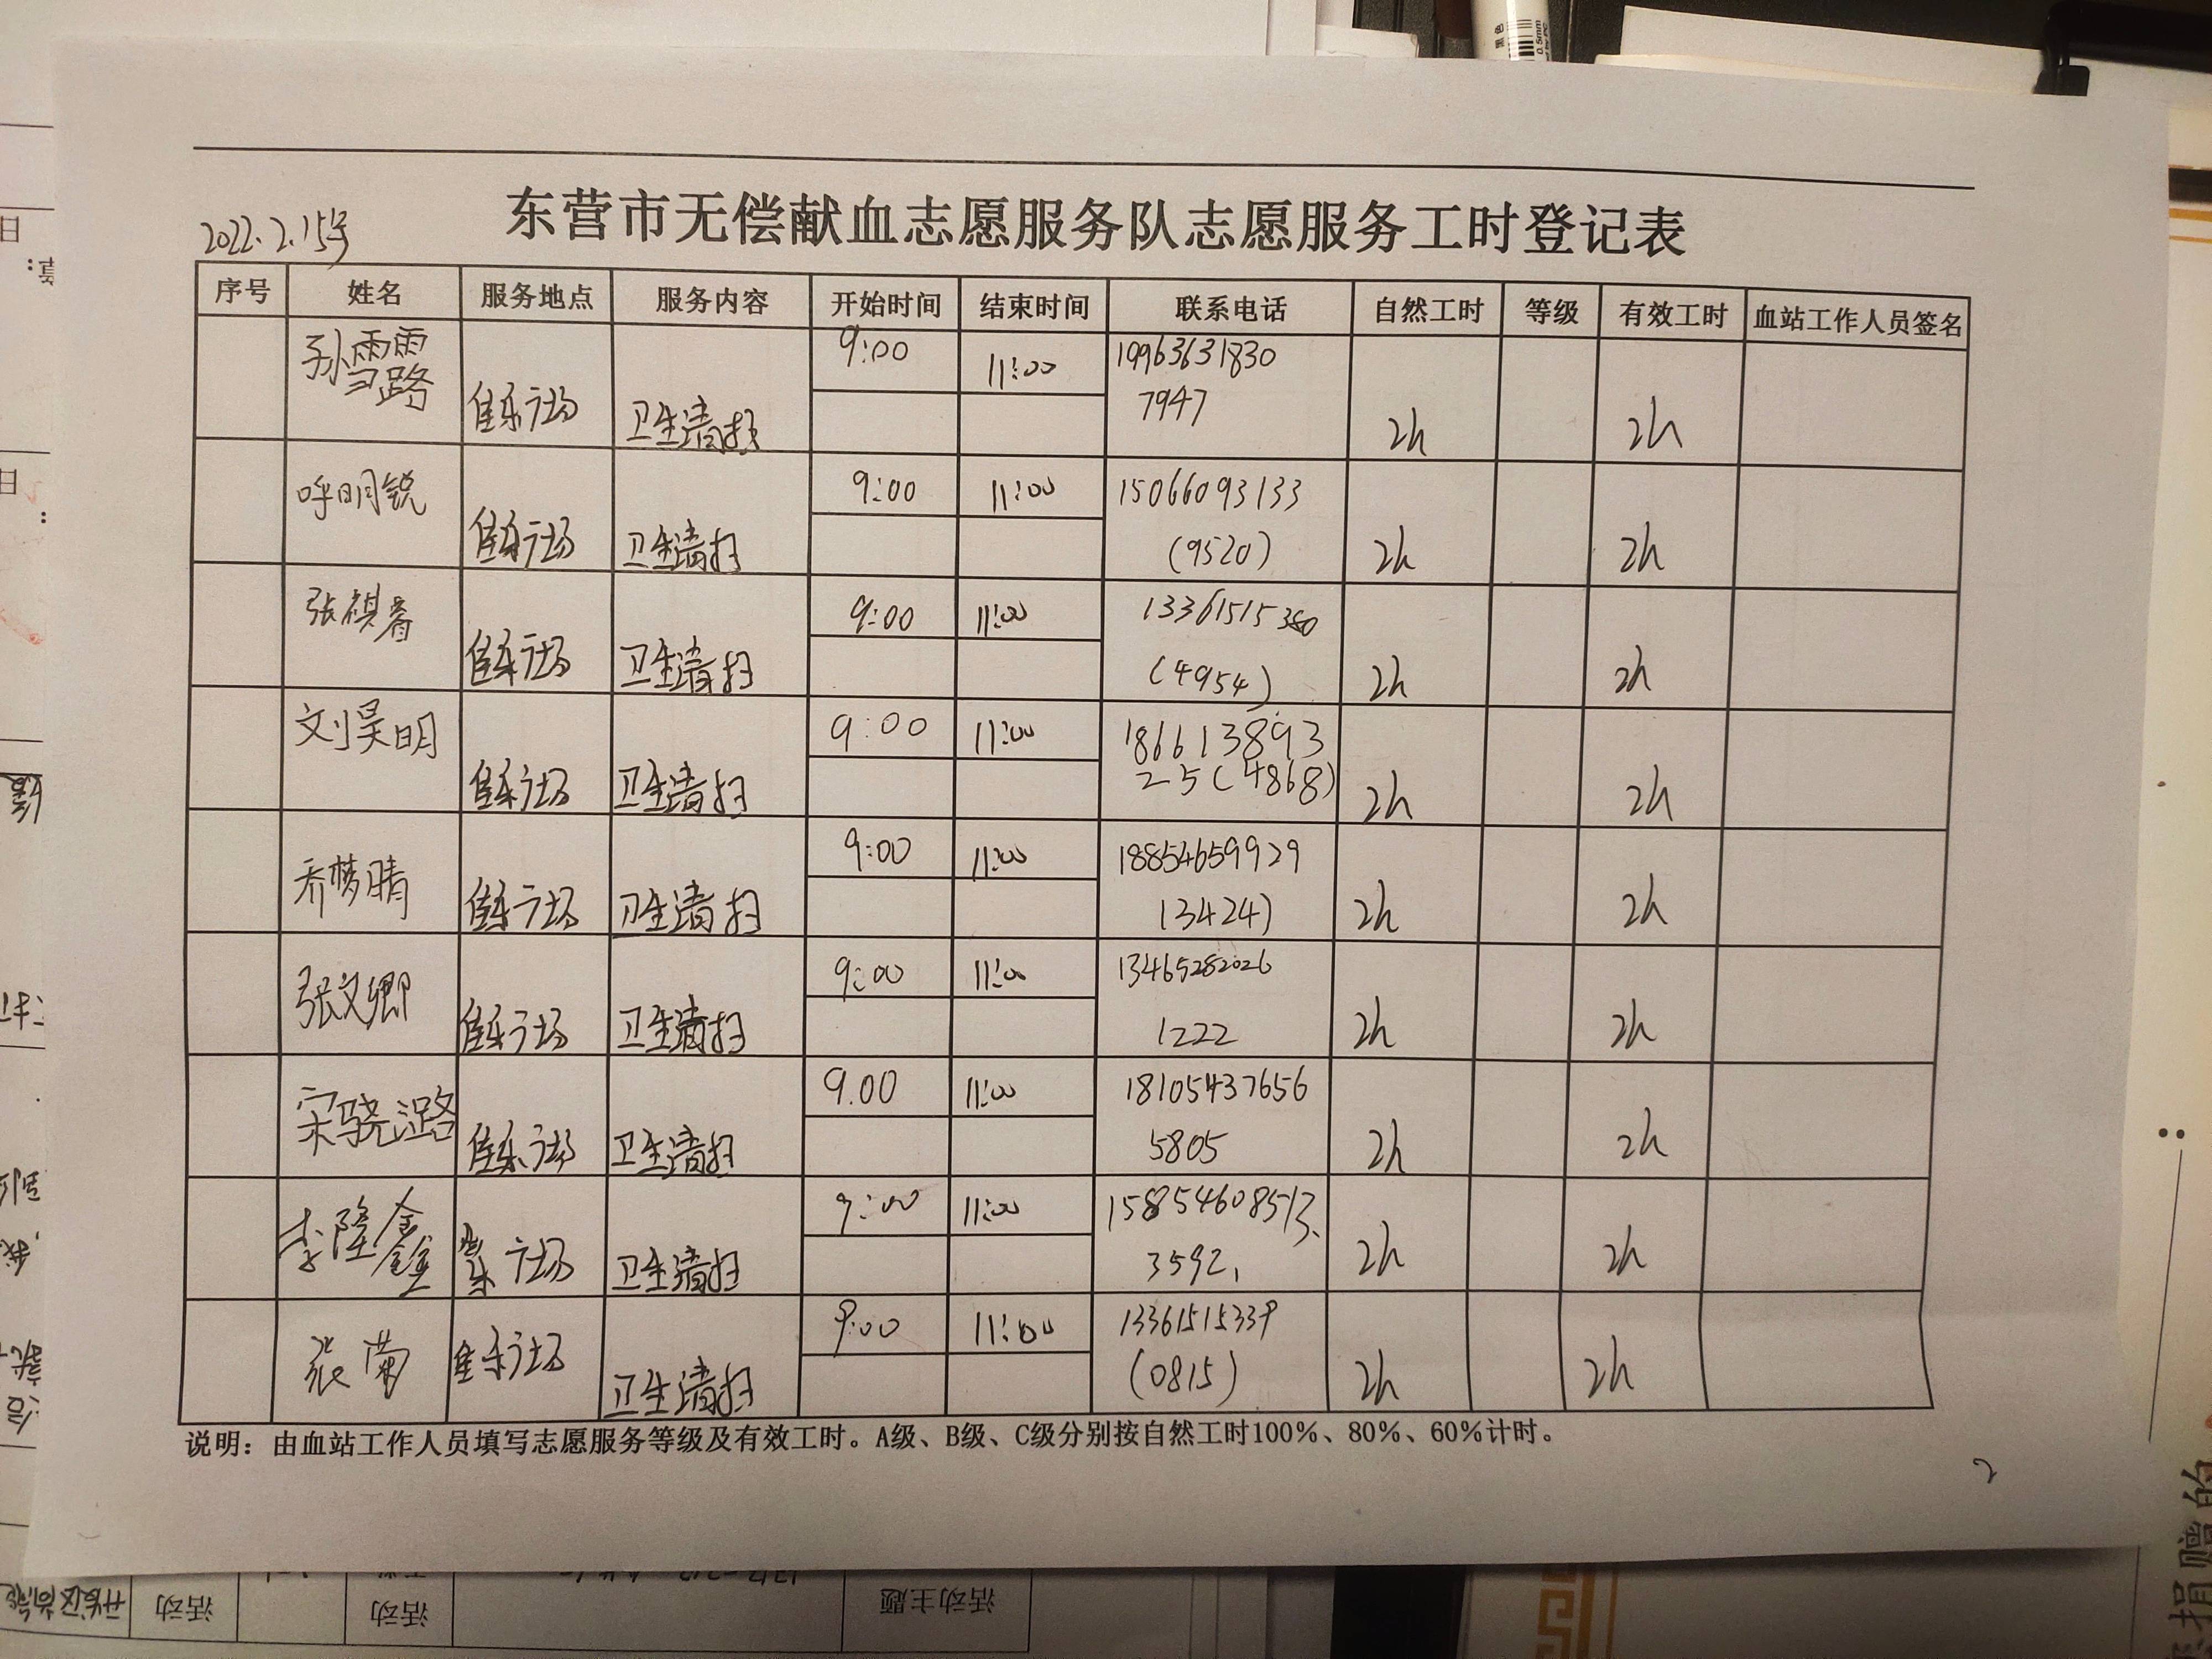 黑色
0.5mm
东营市无偿献血志愿服务队志愿服务工时登记表
2022.2.15号
序号 姓名 服务地点 服务内容 开始时间 结束时间 联系电话 自然工时 等级 有效工时 血站工作人员签名
孙雪露 佳乐广场 卫生清扫 9:00 11:00 19963631830
7947 2h 2h
呼明锐 佳乐广场 卫生清扫 9:00 11:00 15066093133
(9520) 2h 2h
张祺睿 佳乐广场 卫生清扫 9:00 11:00 13361515380
(4954) 2h 2h
刘昊明 佳乐广场 卫生清扫 9:00 11:00 186613893
25(4868) 2h 2h
乔梦晴 佳乐广场 卫生清扫 9:00 11:00 18854659929
(3424) 2h 2h
张文卿 佳乐广场 卫生清扫 9:00 11:00 13465282026
1222 2h 2h
宋骁潞 佳乐广场 卫生清扫 9.00 11:00 18105437656
5805 2h 2h
李隆鑫 广场 卫生清扫 9:00 11:00
3592 2h 2h
张菊 佳乐广场 卫生清扫 9:00 11:00 13361515339
(0815) 2h 2h
说明：由血站工作人员填写志愿服务等级及有效工时。A级、B级、C级分别按自然工时100%、80%、60%计时。
2
活动 活动 活动主题
捐赠的